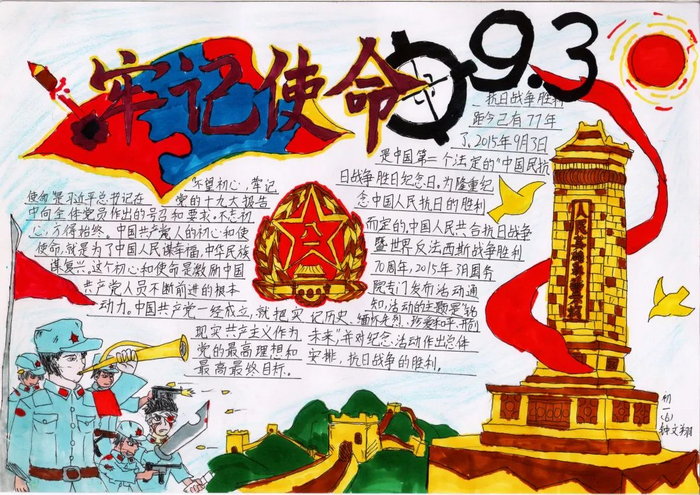 牢记使命
9.3
"不望初心，牢记
使命"是习近平总书记在党的十九大报告
中向全体党员作出的号召和要求，不忘初
心，方得始终。中国共产党人的初心和使
使命，就是为了中国人民谋幸福，中华民族
谋复兴，这个初心和使命是激励中国
共产党人员不断前进的根本
动力。中国共产党一经成立，就把实
现共产主义作为
党的最高理想和
最高最终目标。
抗日战争胜利
距今已有77年
了，2015年9月3日
是中国第一个法定的"中国民抗
日战争胜日纪念日。为隆重纪
念中国人民抗日的胜利
而定的，中国人民共合抗日战争
暨世界反法西斯战争胜利
70周年，2015年
院专门发布活动通
知，活动的主题是"铭
记历史、缅怀先烈、珍爱和平、开创
未来"，并对纪念活动作出总体
安排，抗日战争的胜利。
八一
人民英雄
初
一
(6)
钟文翔